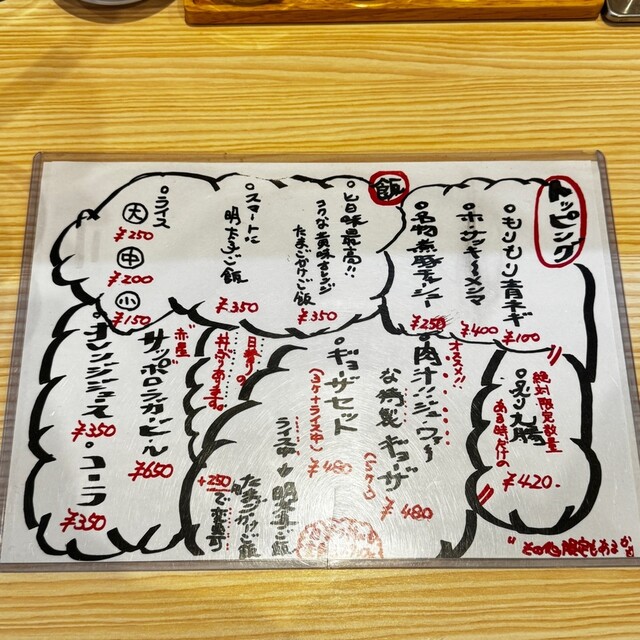 トッピング
もりもり青ネギ
¥100
ホ・サッキ〜メンマ
¥400
名物煮豚チャーシュー
¥250
飯
旨味最高!!
たまごかけご飯
¥350
スタートに
明太ご飯
¥350
ライス
大
¥250
中
¥200
小
¥150
絶対限定数量
ある時だけの
炙り丸腸
¥420
オススメ!!
肉汁ジューウァー
な特製ギョーザ
(5ケ)
¥480
ギョーザセット
(3ケ+ライス中)
¥480
ライス中→明太ご飯
たまごかけご飯
+250で変更可
日替りの
丼ぶりあります。
赤星
サッポロラガービール
¥650
オレンジジュース
¥350
コーラ
¥350
"その他限定もあるかも"